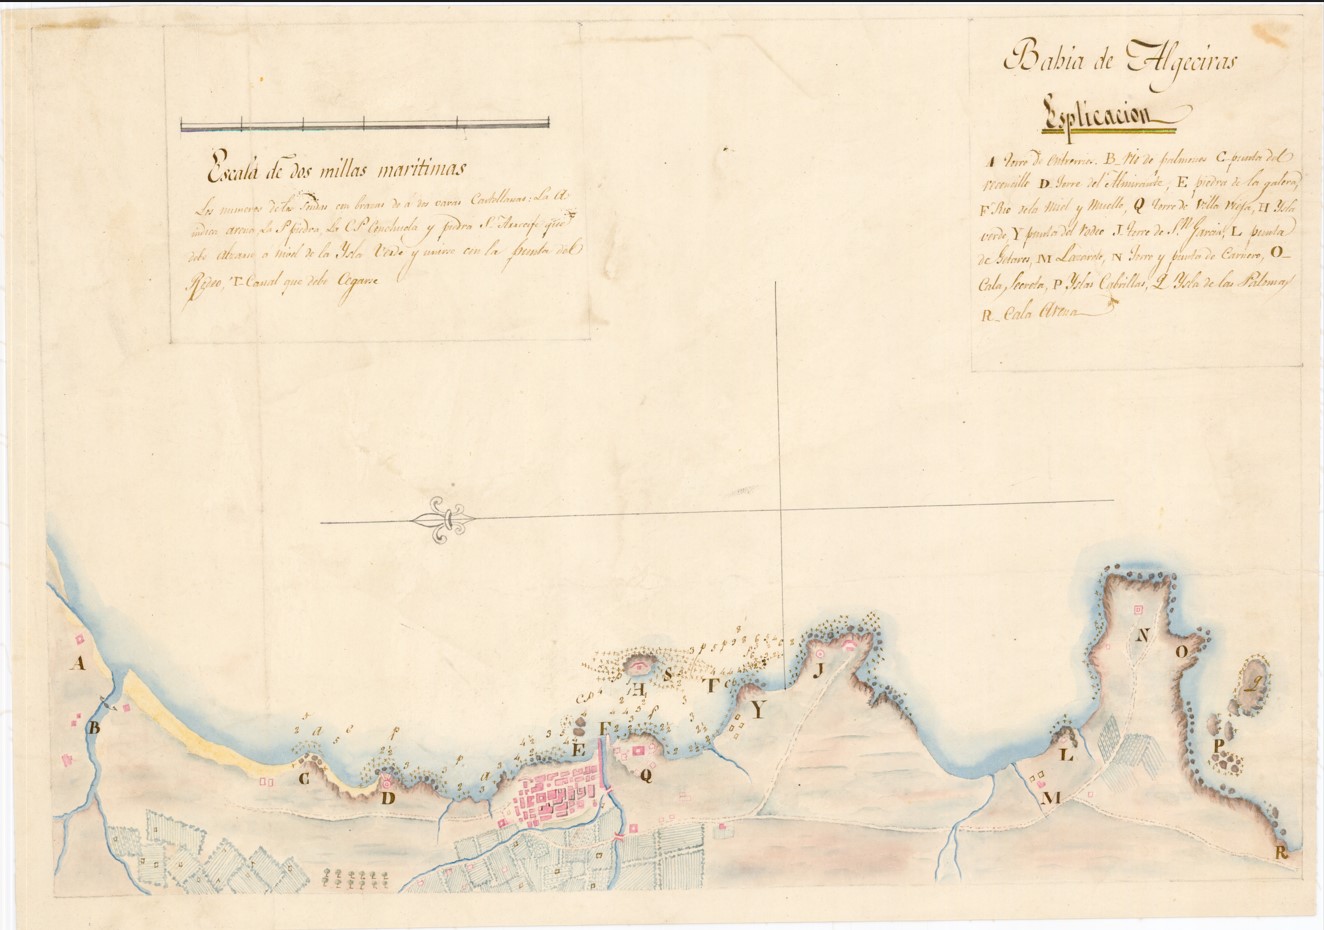 Bahia de Algeciras
Esplicacion
A torre de entrerrios. B Rio de palmones C. punta del
reconcillo D torre del Almirante, E piedra de la galera,
F Rio de la Miel y Muelle, Q torre de Villa Vieja, H Ysla
verde, Y punta del Rodeo J. torre de S.n Garcia, L punta
de Getares, M Lazareto, N torre y punta de Carnero, O
Cala Secreta, P Yslas Cabrillas, Q Ysla de las Palomas
R Cala Arena
Escala de dos millas maritimas
Los numeros de las Sondas son brazas de a dos varas Castellanas: La A
indica arena, La P piedra, La C.P. Conchuela y piedra S. Arrecife que
debe alzarse a nivel de la Ysla Verde y unirse con la punta del
Rodeo, T. Canal que debe Cegarse
A
B
C
D
E
F
H
S
T
Y
Q
J
L
M
N
O
P
Q
R